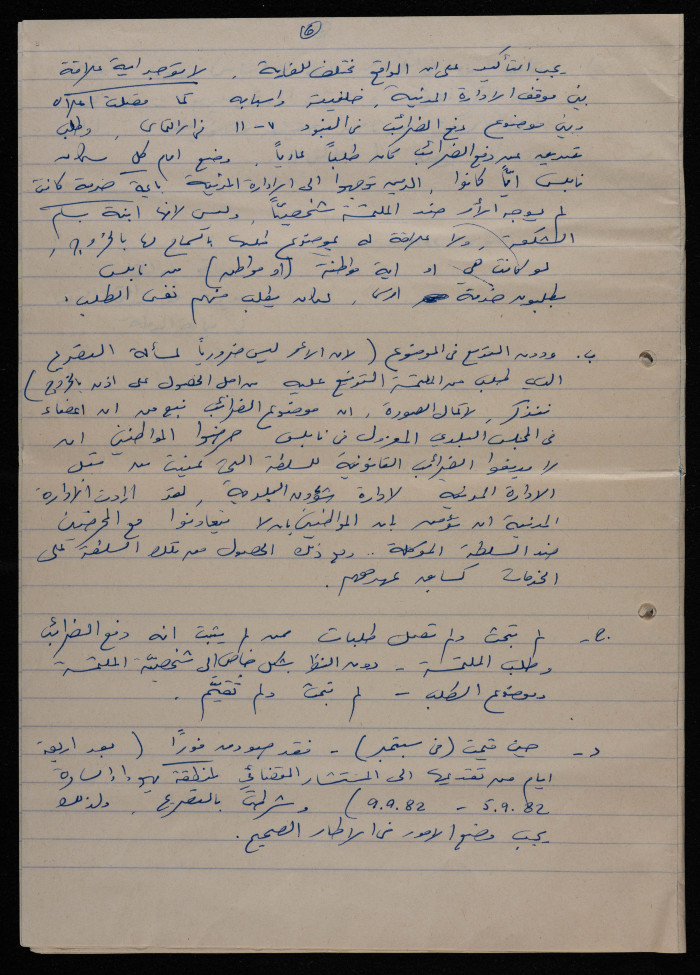 ٦
يجب التأكيد على ان الواقع مختلف للغاية. لا توجد اية علاقة
بين موقف الادارة المدنية, خلفيته واسبابه كما فصلت اعلاه
وبين موضوع دفع الضرائب في البنود ٧-١١ في الالتماس. وطلب
تقديم عن دفع الضرائب كان طلباً عادياً, وضع امام كل سكان
نابلس أيّاً كانوا, الذين توجهوا الى الادارة المدنية باية خدمة كانت
لم يوجه الأمر ضد الملتمسة شخصيّاً, وليس لانها ابنة بسام
الشكعة, ولا علاقة له بموضوع طلبها بالسماح لها بالخروج,
لو كانت هي او اية مواطنة (او مواطن) من نابلس
يطلبون خدمة اخرى, لكان يطلب منهم نفس الطلب.
ب. ودون التوسع في الموضوع (لان الأمر ليس ضرورياً لمسألة التصريح
الذي طلب من الملتمسة التوقيع عليه من اجل الحصول على اذن بالخروج)
نتذكر, لاكمال الصورة, ان موضوع الضرائب نبع من ان اعضاء
في المجلس البلدي المعزول في نابلس حرضوا المواطنين ان
لا يدفعوا الضرائب القانونية للسلطة التي عينت من قبل
الادارة المدنية لادارة شؤون البلدية, لقد ارادت الادارة
المدنية ان تؤمن بان المواطنين بان لا يتعاونوا مع المحرضين
ضد السلطة الموكلة.. ومع ذلك الحصول من تلك السلطة على
الخدمات كسابق عهدهم.
ج- لم تبحث ولم تقبل طلبات ممن لم يثبت انه دفع الضرائب
وطلب الملتمسة - دون النظر بشكل خاص الى شخصيّة الملتمسة
وموضوع الطلب - لم تبحث ولم تُقيَّم.
د- حين قدمت (في سبتمبر) - فقد فوراً (بعد اربعة
ايام من تقديمها الى المستشار القضائي لمنطقة يهودا والسامرة
5.9.82 - 9.9.82) وشرطت بالتصريح, ولذلك
يجب وضع الامور في الاطار الصحيح.